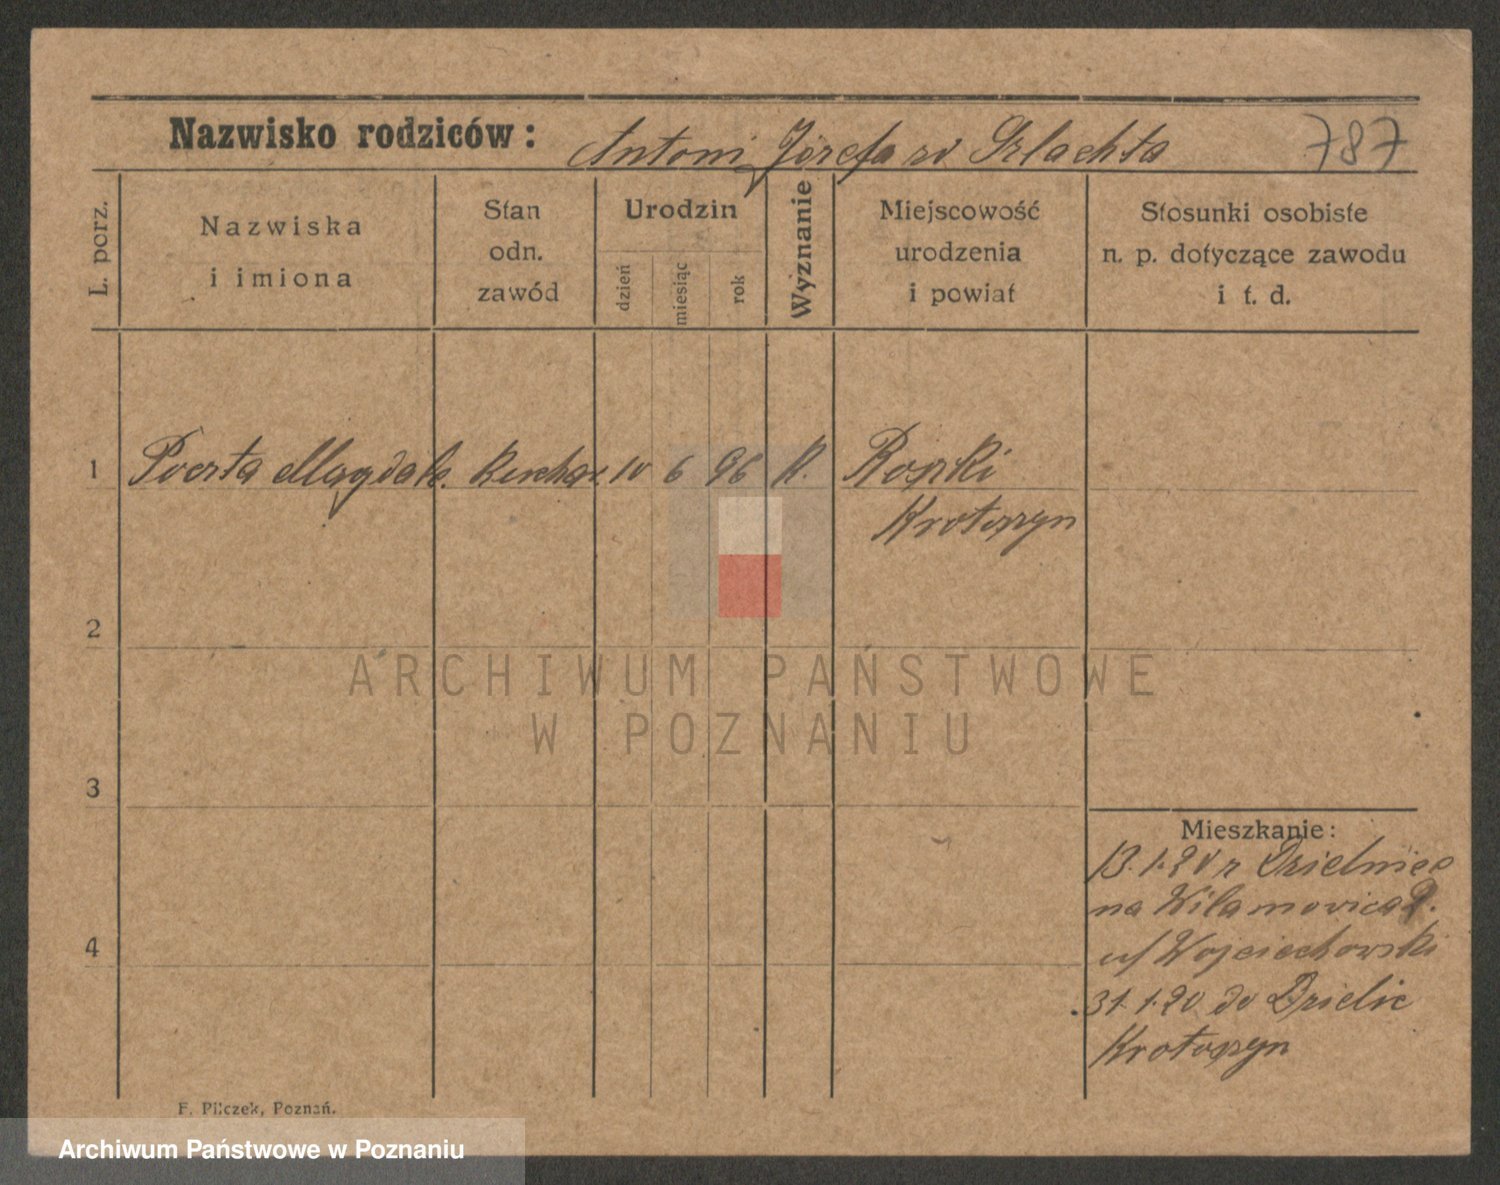 Nazwisko rodziców: Antoni Józefa zd Szlachta 787
L. porz.
Nazwiska
i imiona
Stan
odn.
zawód
Urodzin
dzień
miesiąc
rok
Wyznanie
Miejscowość
urodzenia
i powiat
Stosunki osobiste
n. p. dotyczące zawodu
i t. d.
1 Magdale. 10 6 96 K. Roszki
Krotoszyn
2
3
4
Mieszkanie:
13.1.20 z Dzielnice
na
u/ Wojciechowski
31.1.20 do Dzielic
Krotoszyn
F. Pilczek, Poznań.
ARCHIWUM PAŃSTWOWE
W POZNANIU
Archiwum Państwowe w Poznaniu